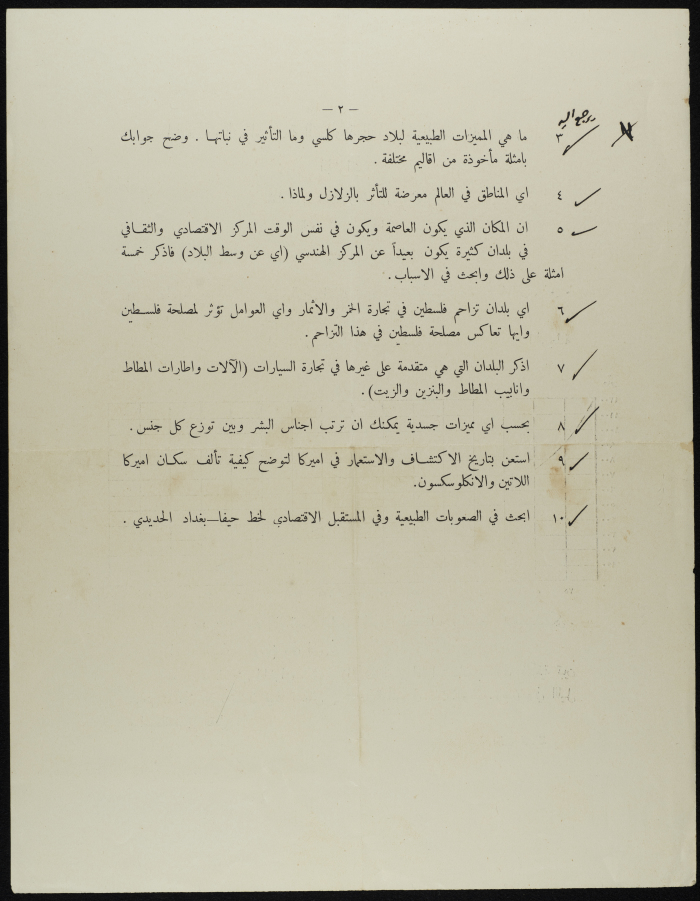 — ٢ —
يرجع اليه
٣ ما هي المميزات الطبيعية لبلاد حجرها كلسي وما التأثير في نباتها . وضح جوابك
بامثلة مأخوذة من اقاليم مختلفة .
٤ اي المناطق في العالم معرضة للتأثر بالزلازل ولماذا .
٥ ان المكان الذي يكون العاصمة ويكون في نفس الوقت المركز الاقتصادي والثقافي
في بلدان كثيرة يكون بعيداً عن المركز الهندسي (اي عن وسط البلاد) فاذكر خمسة
امثلة على ذلك وابحث في الاسباب .
٦ اي بلدان تزاحم فلسطين في تجارة الخمر والاثمار واي العوامل تؤثر لمصلحة فلسطين
وايها تعاكس مصلحة فلسطين في هذا التزاحم .
٧ اذكر البلدان التي هي متقدمة على غيرها في تجارة السيارات (الآلات واطارات المطاط
وانابيب المطاط والبنزين والزيت) .
٨ بحسب اي مميزات جسدية يمكنك ان ترتب اجناس البشر وبين توزع كل جنس .
٩ استعن بتاريخ الاكتشاف والاستعمار في اميركا لتوضح كيفية تألف سكان اميركا
اللاتين والانكلوسكسون.
١٠ ابحث في الصعوبات الطبيعية وفي المستقبل الاقتصادي لخط حيفا—بغداد الحديدي .